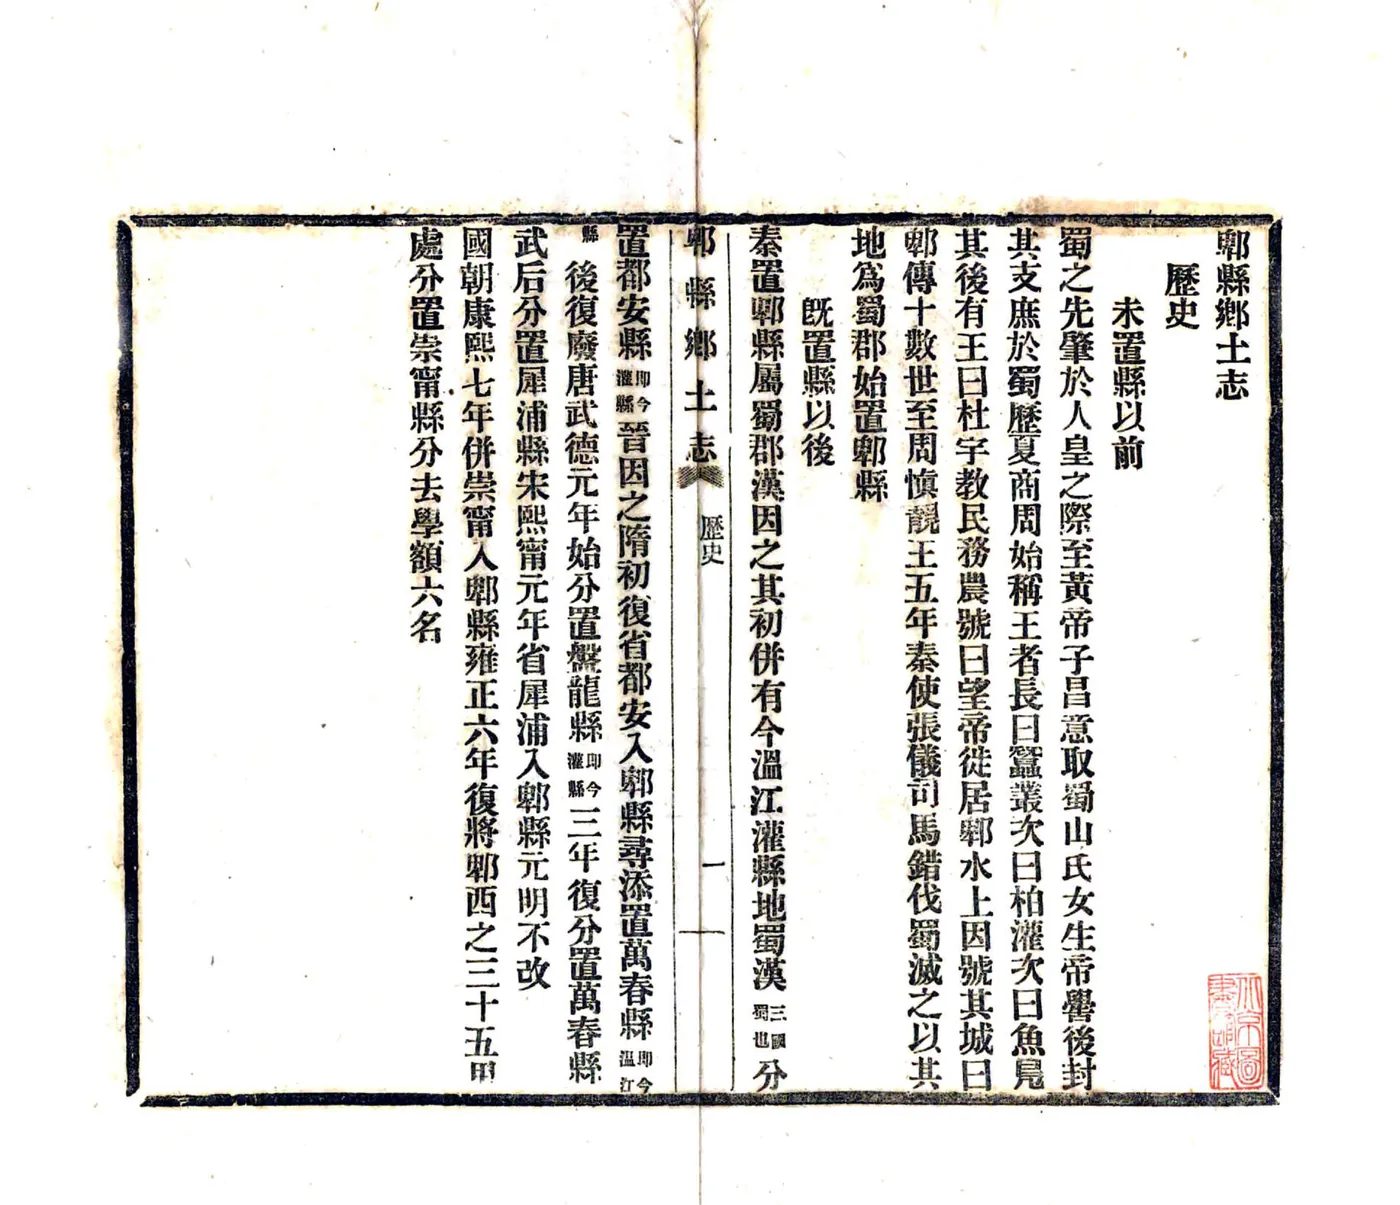 郫縣鄉土志
歷史
未置縣以前
蜀之先肇於人皇之際至黃帝子昌意取蜀山氏女生帝嚳後封
其支庶於蜀歷夏商周始稱王者長曰蠶叢次曰柏灌次曰魚鳧
其後有王曰杜宇教民務農號曰望帝徙居郫水上因號其城曰
郫傳十數世至周慎靚王五年秦使張儀司馬錯伐蜀滅之以其
地爲蜀郡始置郫縣
旣置縣以後
秦置郫縣屬蜀郡漢因之其初併有今溫江灌縣地蜀漢三國蜀也分
郫縣鄉土志 歷史 一
置都安縣即今灌縣晉因之隋初復省都安入郫縣尋添置萬春縣即今溫江
縣後復廢唐武德元年始分置盤龍縣即今灌縣三年復分置萬春縣
武后分置犀浦縣宋熙甯元年省犀浦入郫縣元明不改
國朝康熙七年併崇甯入郫縣雍正六年復將郫西之三十五甲
處分置崇甯縣分去學額六名
北京圖
書館藏